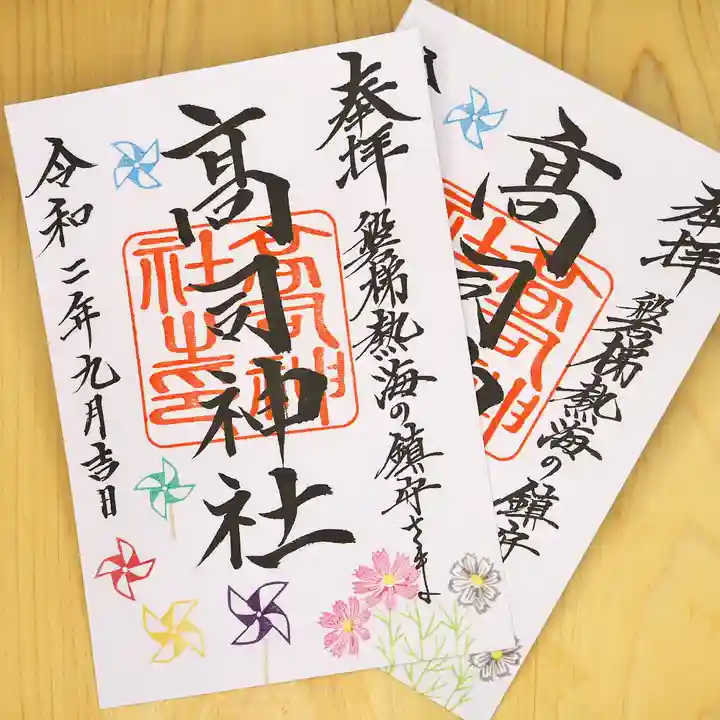 奉拝
磐梯熱海の鎮守さま
髙司神社
令和二年九月吉日
髙司神
社之印
奉拝
磐梯熱海の鎮守
髙司